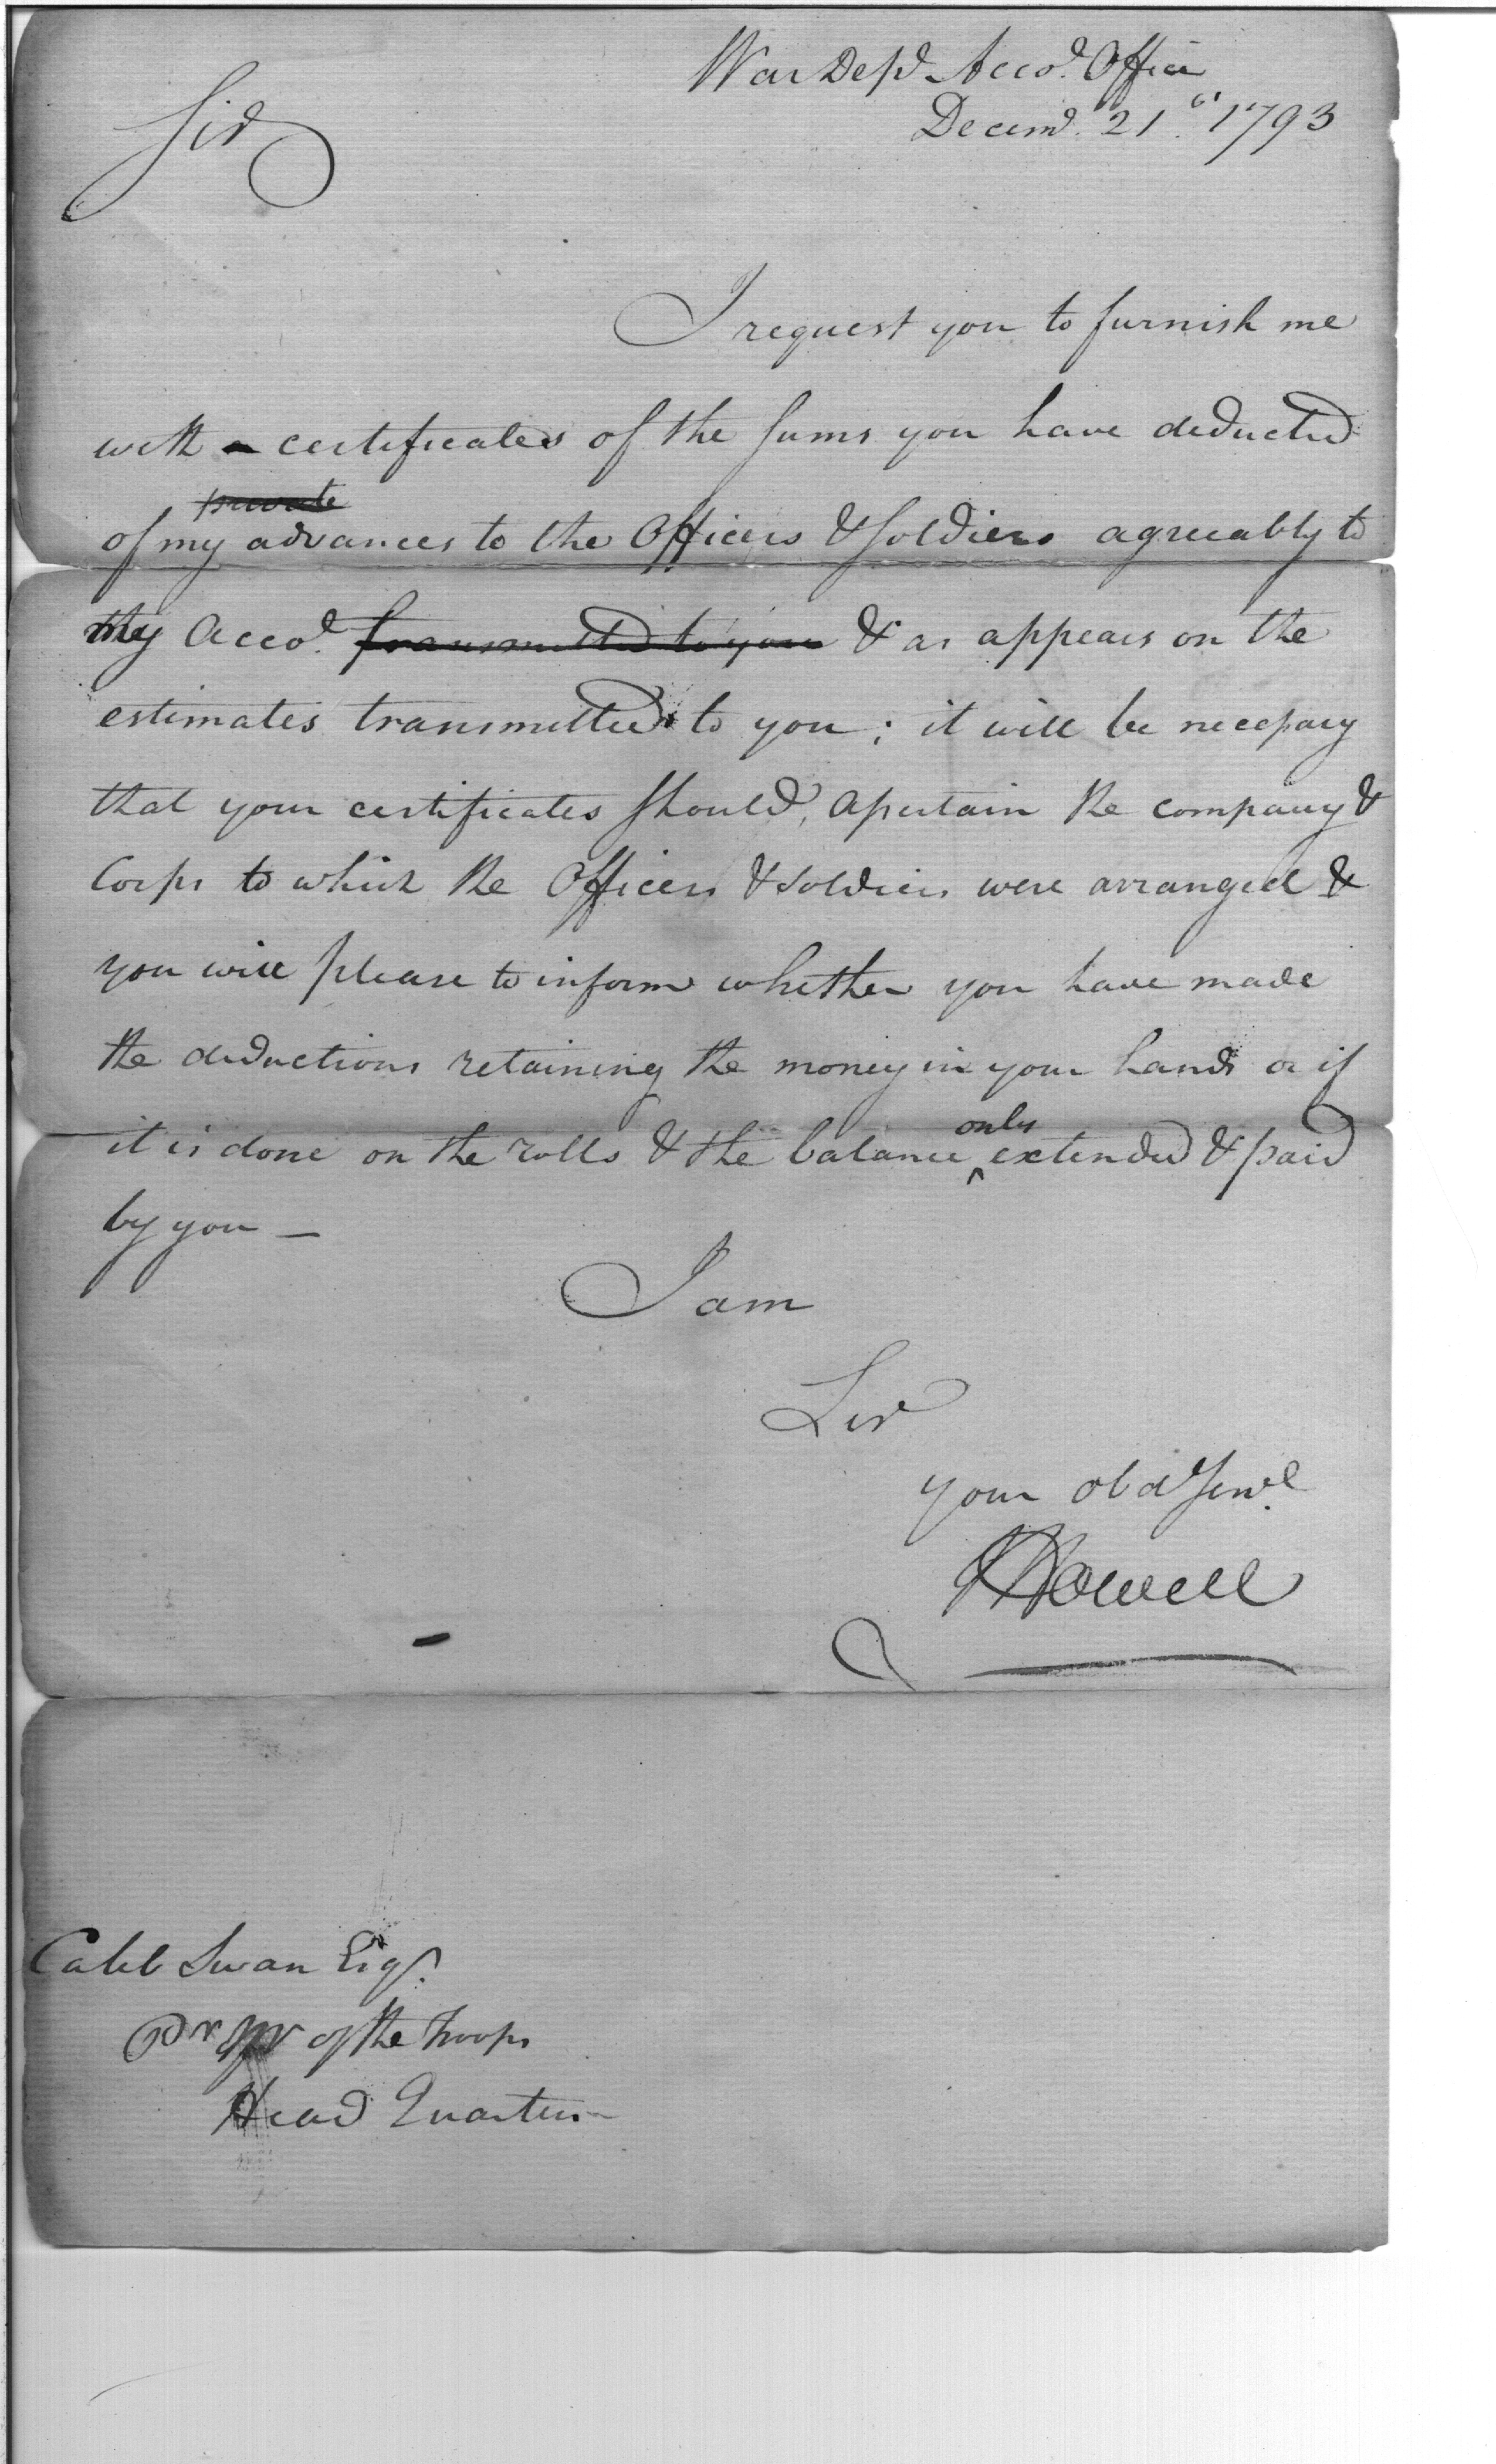 War Dep.t Acco.t Office
Decem.r 21.st 1793
Sir
I request you to furnish me
with certificates of the sums you have deducted
private
of my advances to the Officers & soldiers agreeably to
my Acco.t transmitted to you & as appears on the
estimates transmitted to you; it will be necessary
that your certificates should, ascertain the company &
Corps to which the Officers & soldiers were arranged &
you will please to inform whether you have made
the deductions retaining the money in your hands or if
only
it is done on the rolls & the balance ^ extended & paid
by you —
I am
Sir
your ob.d Serv.t
Howell
Caleb Swan Esq.r
of the Troops
Head Quarters